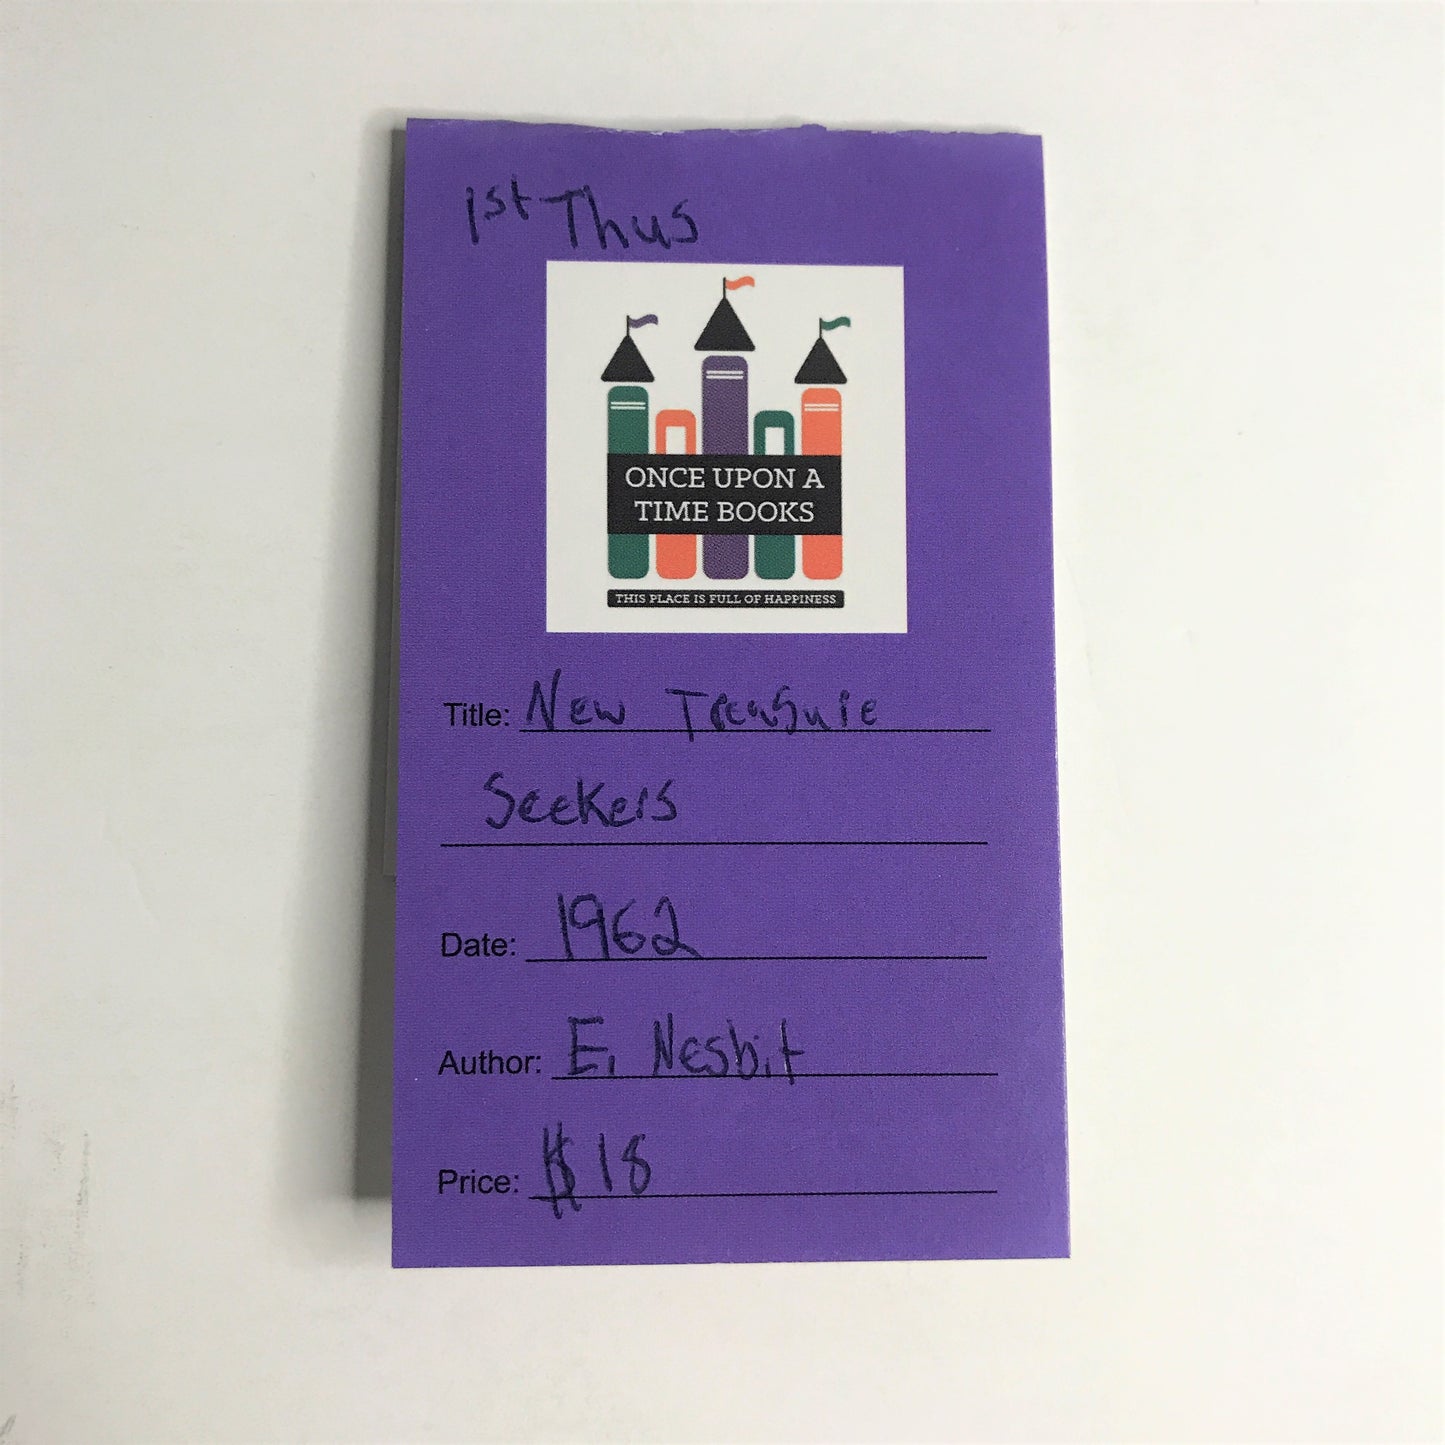 1st Thus
ONCE UPON A
TIME BOOKS
THIS PLACE IS FULL OF HAPPINESS
Title: New Treasure
Seekers
Date: 1962
Author: E. Nesbit
Price: $18